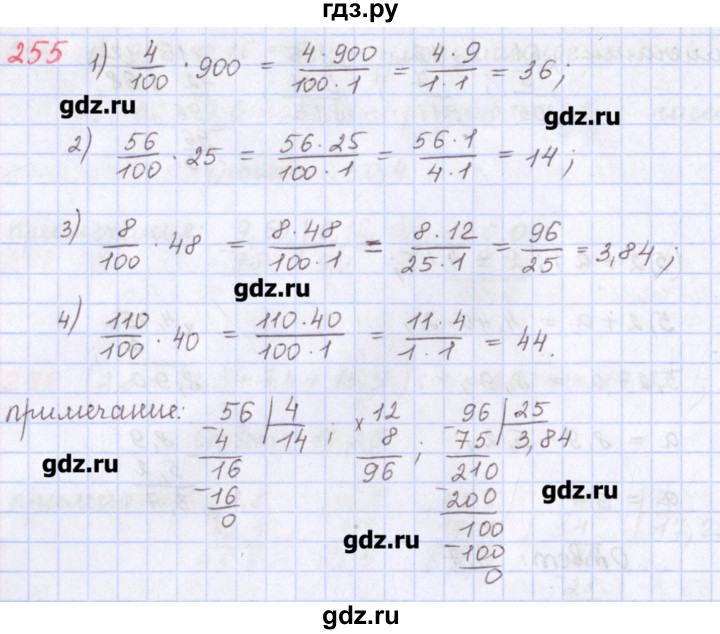 гдз.ру
255 1) 4/100 · 900 = 4·900/100·1 = 4·9/1·1 = 36;
gdz.ru
gdz.ru
2) 56/100 · 25 = 56·25/100·1 = 56·1/4·1 = 14;
3) 8/100 · 48 = 8·48/100·1 = 8·12/25·1 = 96/25 = 3,84;
gdz.ru
4) 110/100 · 40 = 110·40/100·1 = 11·4/1·1 = 44.
примечание: 56 | 4 ; × 12 96 | 25
- 4 14 8 ; - 75 3,84
gdz.ru
16 96 210
- 16 - 200
gdz.ru
0 100
gdz.ru
- 100
0
gdz.ru